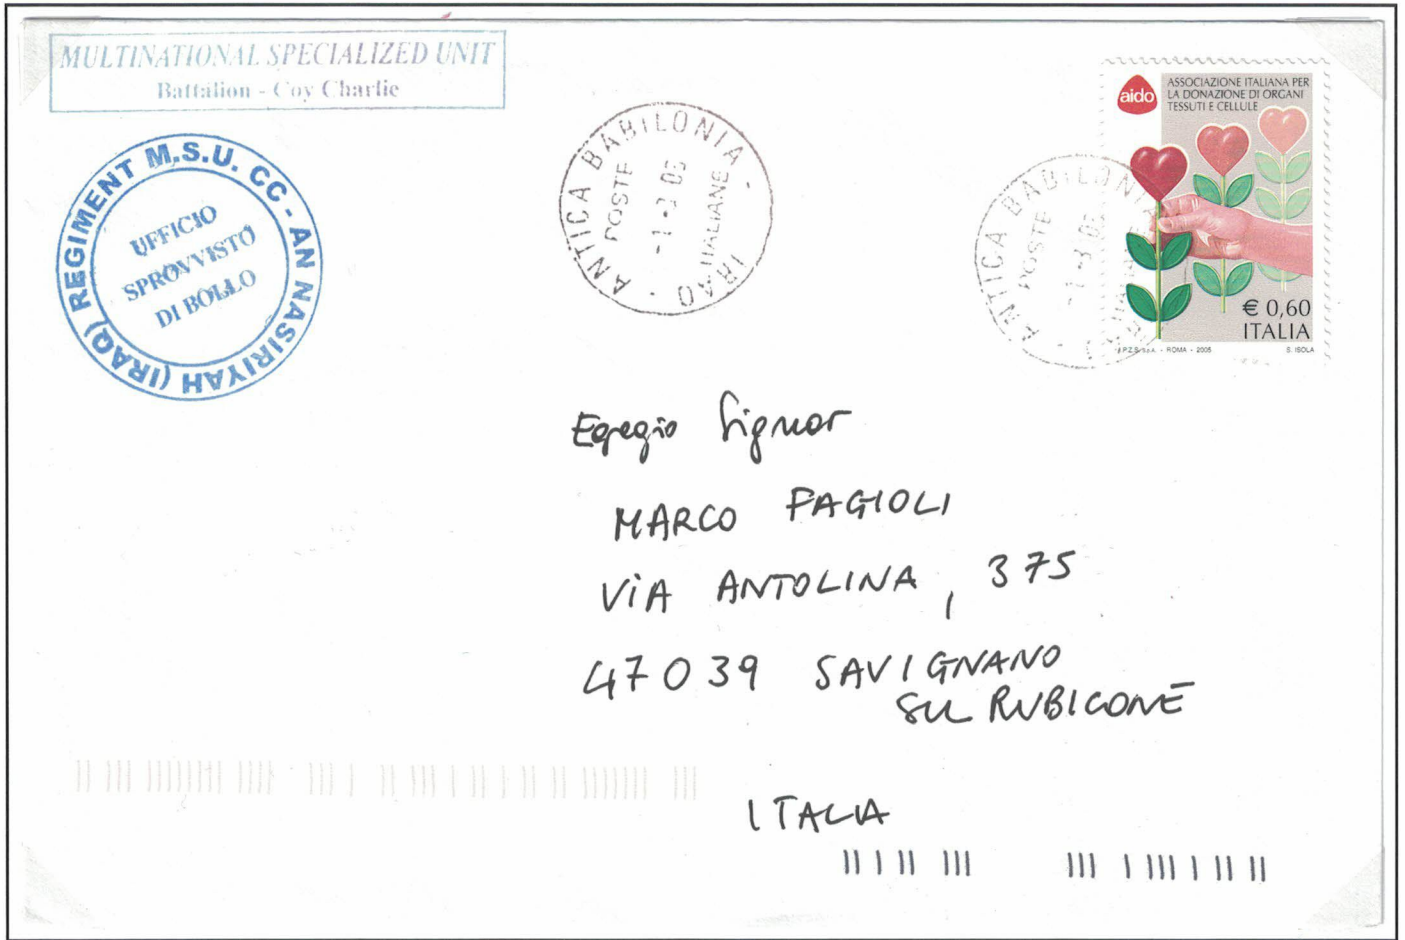 MULTINATIONAL SPECIALIZED UNIT
Battalion - Coy Charlie
REGIMENT M.S.U. CC - AN NASIRIYAH (IRAQ)
UFFICIO
SPROVVISTO
DI BOLLO
ANTICA BABILONIA - IRAQ -
POSTE
ITALIANE
aido
ASSOCIAZIONE ITALIANA PER
LA DONAZIONE DI ORGANI
TESSUTI E CELLULE
ANTICA BABILONIA
POSTE
€ 0,60
ITALIA
I.P.Z.S. S.p.A. - ROMA - 2005
S. ISOLA
Egregio Signor
MARCO FAGIOLI
VIA ANTOLINA, 375
47039 SAVIGNANO
SUL RUBICONE
ITALIA